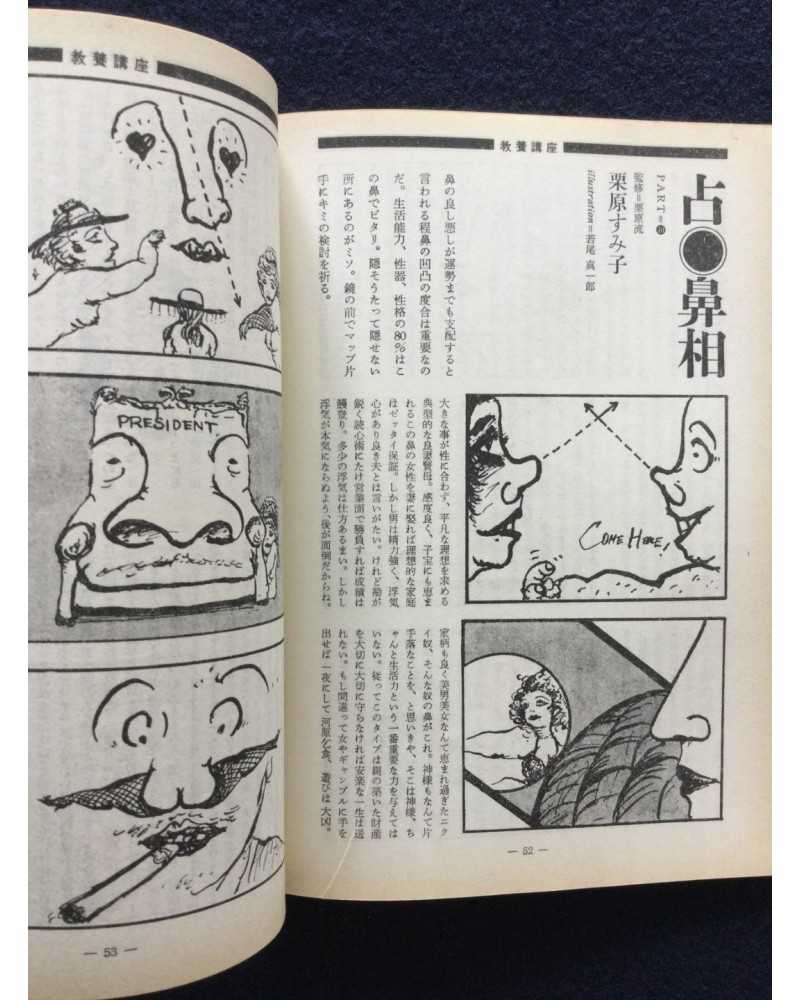 教養講座
占●鼻相
PART=
監修=栗原流
栗原すみ子
illustration=若尾真一郎
鼻の良し悪しが運勢までも支配すると
言われる程鼻の凹凸の度合は重要なの
だ。生活能力、性器、性格の80%はこ
の鼻でピタリ。隠そうたって隠せない
所にあるのがミソ。鏡の前でマップ片
手にキミの検討を祈る。
COME HERE!
大きな事が性に合わず、平凡な理想を求める
典型的な良妻賢母。感度良く、子宝にも恵ま
れるこの鼻の女性を妻に娶れば理想的な家庭
はゼッタイ保証。しかし男は精力強く、浮気
心があり良き夫とは言いがたい。けれど勘が
鋭く読心術にたけ営業面で勝負すれば成績は
鰻登り。多少の浮気は仕方あるまい。しかし
浮気が本気にならぬよう、後が面倒だからね。
家柄も良く美男美女なんて恵まれ過ぎたニク
イ奴、そんな奴の鼻がこれ。神様もなんて片
手落なことを、と思いきや、そこは神様、ち
ゃんと生活力という一番重要な力を与えては
いない。従ってこのタイプは親の築いた財産
を大切に大切に守らなければ安楽な一生は送
れない。もし間違って女やギャンブルに手を
出せば一夜にして河原乞食、遊びは大凶。
— 52 —
教養講座
PRESIDENT
— 53 —